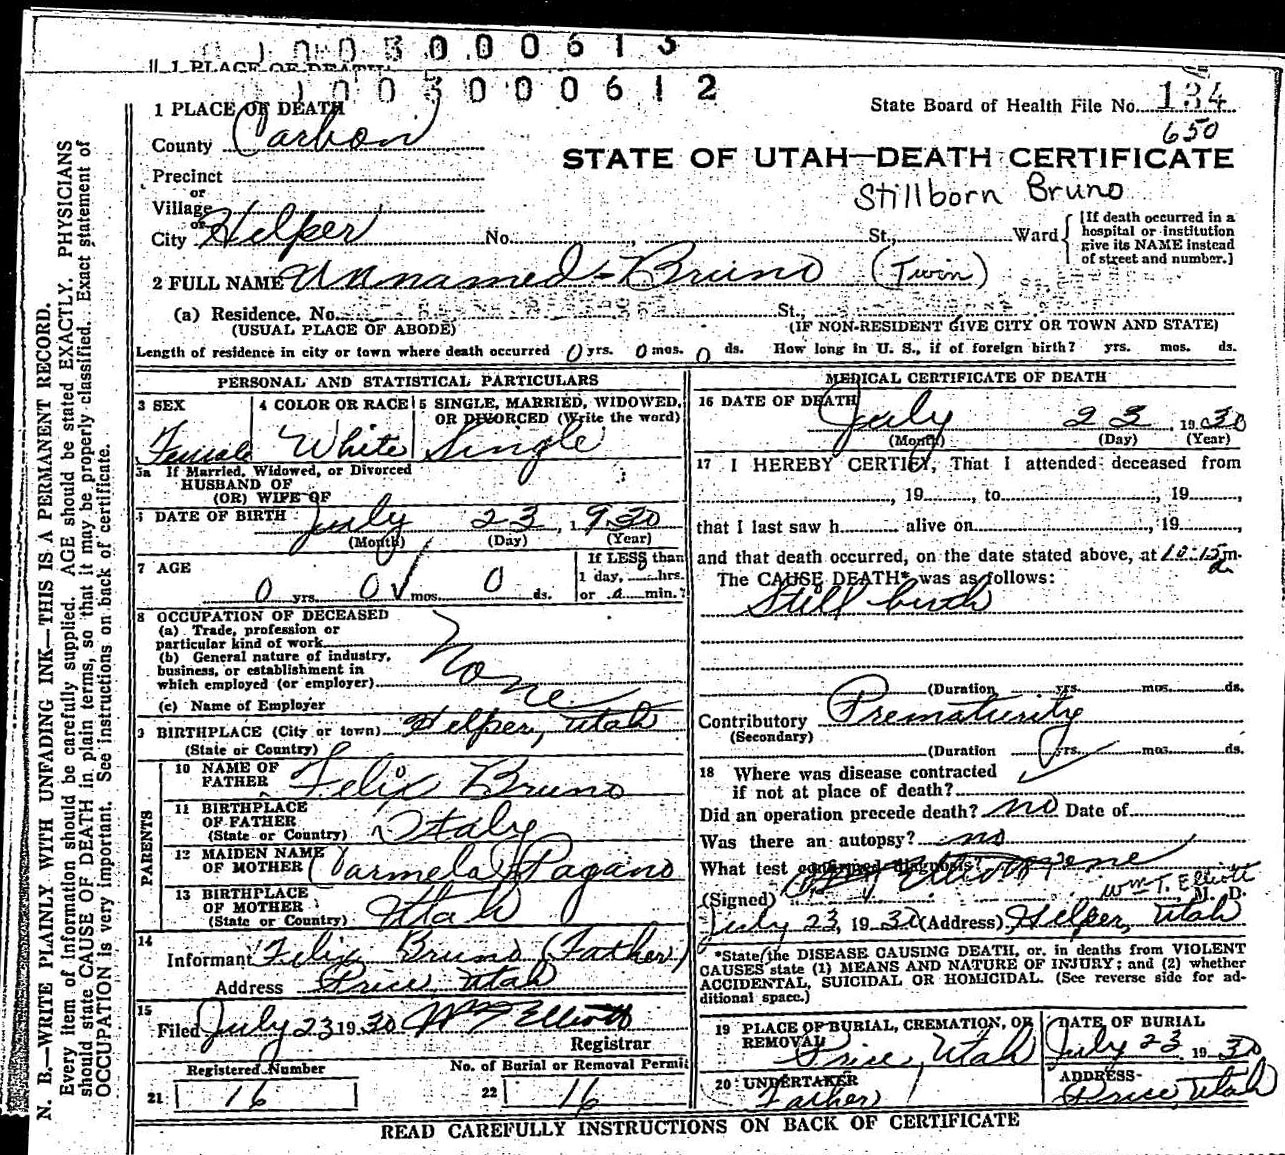 0 0 3 0 0 0 6 1 3
1 PLACE OF DEATH
0 0 3 0 0 0 6 1 2
1 PLACE OF DEATH
State Board of Health File No. 134
650
County Carbon
STATE OF UTAH—DEATH CERTIFICATE
Precinct
or
Stillborn Bruno
Village
or
City Helper No. , St., Ward
[If death occurred in a
hospital or institution
give its NAME instead
of street and number.]
2 FULL NAME Unnamed - Bruno (Twin)
(a) Residence. No. St.,
(USUAL PLACE OF ABODE) (IF NON-RESIDENT GIVE CITY OR TOWN AND STATE)
Length of residence in city or town where death occurred 0 yrs. 0 mos. 0 ds. How long in U. S., if of foreign birth? yrs. mos. ds.
PERSONAL AND STATISTICAL PARTICULARS
3 SEX 4 COLOR OR RACE 5 SINGLE, MARRIED, WIDOWED,
OR DIVORCED (Write the word)
Female White Single
5a If Married, Widowed, or Divorced
HUSBAND OF
(OR) WIFE OF
6 DATE OF BIRTH July 23, 1930
(Month) (Day) (Year)
7 AGE
If LESS than
1 day, hrs.
0 yrs. 0 mos. 0 ds. or min.?
8 OCCUPATION OF DECEASED
(a) Trade, profession or
particular kind of work
(b) General nature of industry,
business, or establishment in
which employed (or employer)
None
(c) Name of Employer
9 BIRTHPLACE (City or town) Helper, Utah
(State or Country)
PARENTS
10 NAME OF
FATHER Felix Bruno
11 BIRTHPLACE
OF FATHER
(State or Country) Italy
12 MAIDEN NAME
OF MOTHER Carmela Pagano
13 BIRTHPLACE
OF MOTHER
(State or Country) Utah
14
Informant Felix Bruno (Father)
Address Price Utah
15
Filed July 23 1930 Wm T Elliott
Registrar
Registered Number No. of Burial or Removal Permit
21 16 22 16
MEDICAL CERTIFICATE OF DEATH
16 DATE OF DEATH
July 23, 1930
(Month) (Day) (Year)
17 I HEREBY CERTIFY, That I attended deceased from
, 19 , to , 19 ,
that I last saw h alive on , 19 ,
and that death occurred, on the date stated above, at 10:15 a m.
The CAUSE DEATH* was as follows:
Still birth
(Duration yrs. mos. ds.
Contributory Prematurity
(Secondary)
(Duration yrs. mos. ds.
18 Where was disease contracted
if not at place of death?
Did an operation precede death? no Date of
Was there an autopsy? no
What test confirmed diagnosis?
Wm T. Elliott
(Signed) M. D.
July 23, 1930 (Address) Helper, Utah
*State the DISEASE CAUSING DEATH, or, in deaths from VIOLENT
CAUSES state (1) MEANS AND NATURE OF INJURY; and (2) whether
ACCIDENTAL, SUICIDAL OR HOMICIDAL. (See reverse side for ad-
ditional space.)
19 PLACE OF BURIAL, CREMATION, OR
REMOVAL
Price, Utah
DATE OF BURIAL
July 23 1930
20 UNDERTAKER
Father
ADDRESS
Price, Utah
READ CAREFULLY INSTRUCTIONS ON BACK OF CERTIFICATE
N. B.—WRITE PLAINLY WITH UNFADING INK—THIS IS A PERMANENT RECORD.
Every item of information should be carefully supplied. AGE should be stated EXACTLY. PHYSICIANS
should state CAUSE OF DEATH in plain terms, so that it may be properly classified. Exact statement of
OCCUPATION is very important. See instructions on back of certificate.